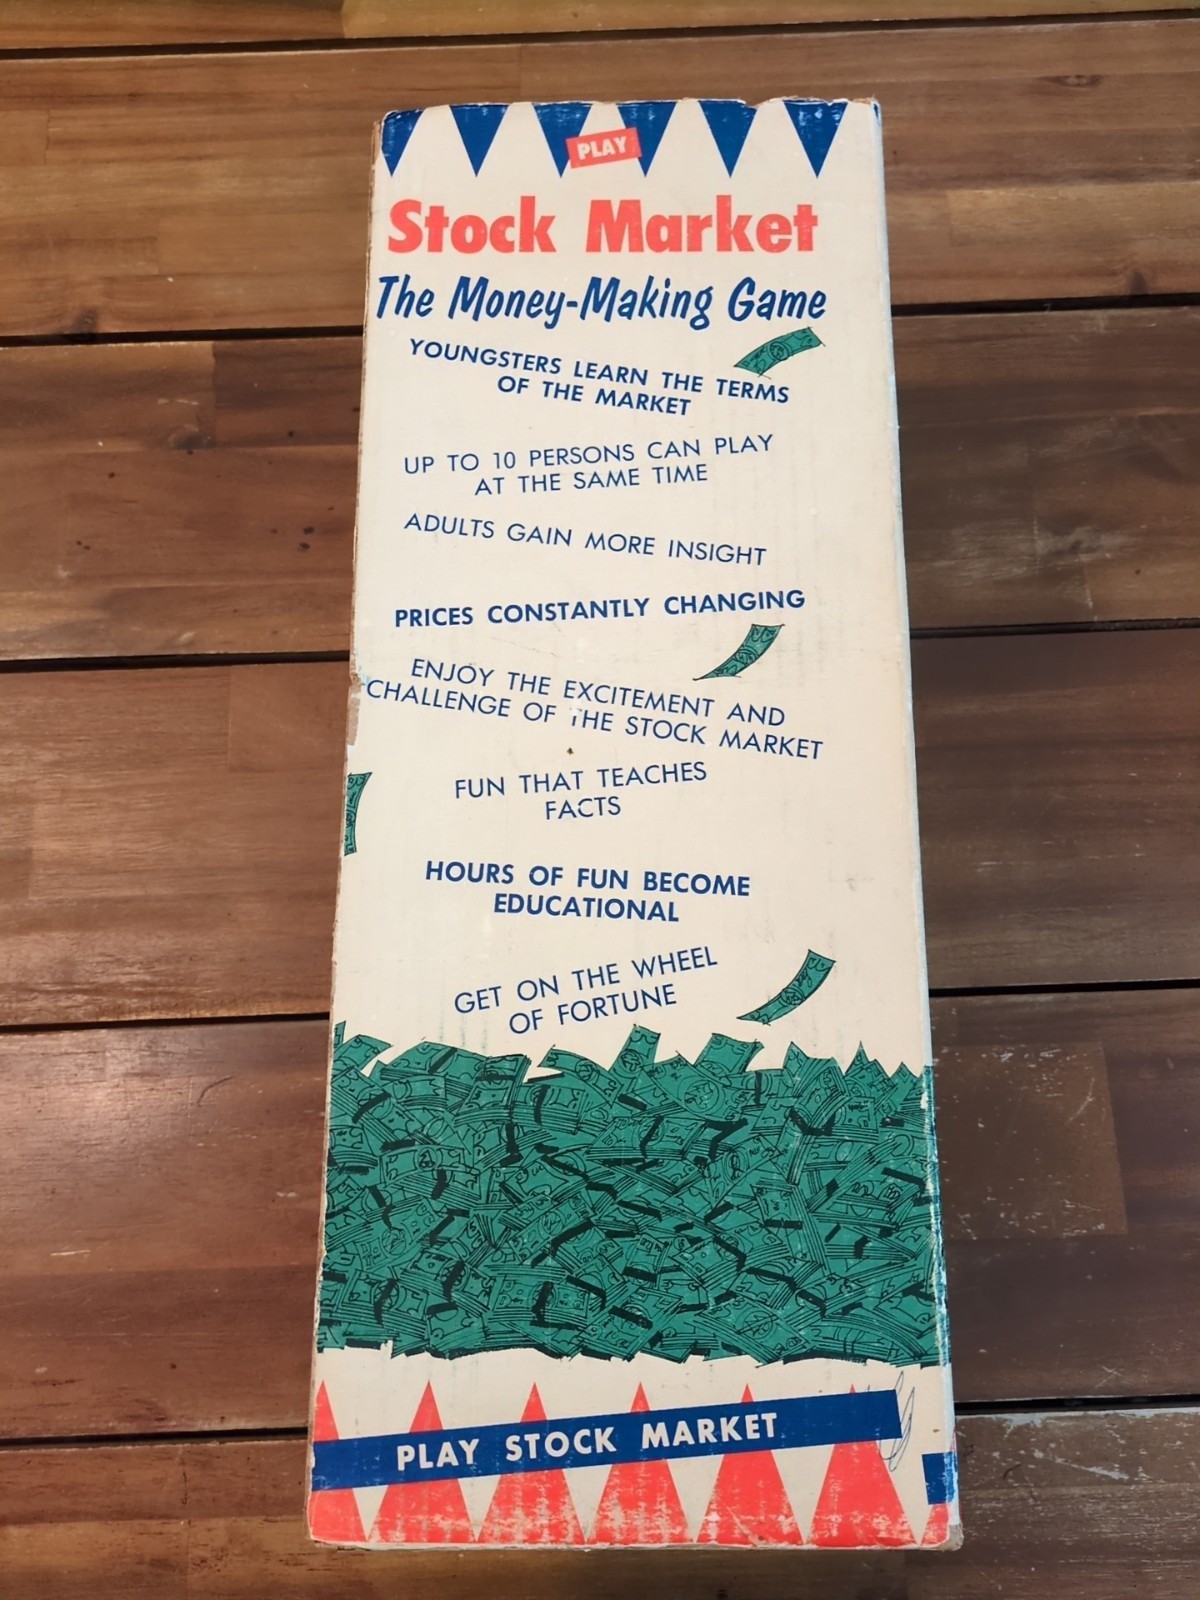 PLAY
Stock Market
The Money-Making Game
YOUNGSTERS LEARN THE TERMS
OF THE MARKET
UP TO 10 PERSONS CAN PLAY
AT THE SAME TIME
ADULTS GAIN MORE INSIGHT
PRICES CONSTANTLY CHANGING
ENJOY THE EXCITEMENT AND
CHALLENGE OF THE STOCK MARKET
FUN THAT TEACHES
FACTS
HOURS OF FUN BECOME
EDUCATIONAL
GET ON THE WHEEL
OF FORTUNE
PLAY STOCK MARKET